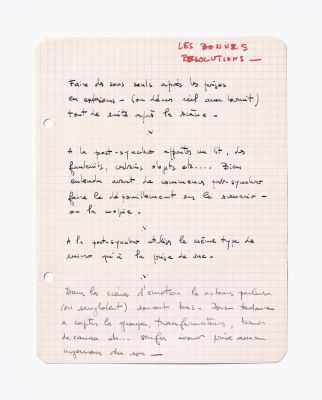 LES BONNES
RESOLUTIONS —
Faire des sons seuls après les prises
en extérieurs - (ou décor réel avec bruit)
tout de suite après la scène.
x
A la post-synchro apporter un lit, des
fauteuils, certains objets etc.... Bien
entendu avant de commencer post-synchro
faire le dépouillement sur le scenario -
ou la copie.
x
A la post-synchro utiliser le même type de
micro qu'à la prise de vue.
x
Dans les scènes d'émotion les acteurs parlent
(ou sanglotent) souvent bas. Donc
à capter les groupes, transformateurs, bruits
de caméra etc... voir prise avec
ingénieur du son —